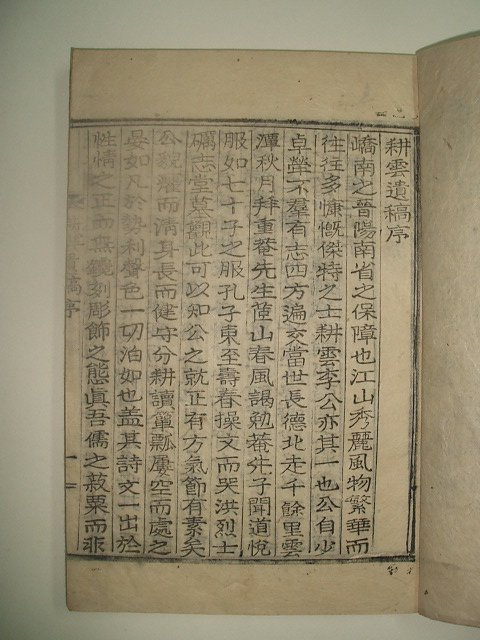 耕雲遺稿序
嶠南之晉陽南省之保障也江山秀麗風物繁華而
往往多慷慨傑特之士耕雲李公亦其一也公自少
卓犖不羣有志四方遍交當世長德北走千餘里雲
潭秋月拜重菴先生莊山春風謁勉菴先子聞道悅
服如七十子之服孔子東至壽春操文而哭洪烈士
礪志堂墓觀此可以知公之就正有方氣節有素矣
公貌癯而淸身長而健守分耕讀簞瓢屢空而處之
晏如凡於勢利聲色一切泊如也盖其詩文一出於
性情之正而無鏤刻彫飾之態眞吾儒之菽栗而非
遺稿序
一